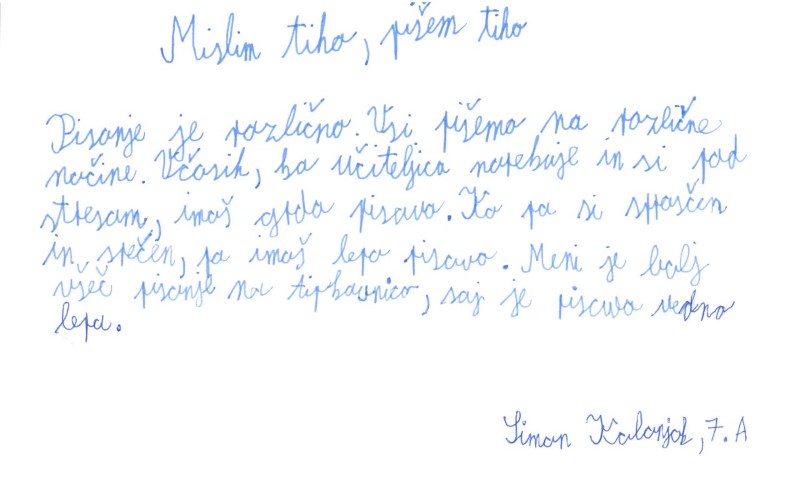 Mislim tiho, pišem tiho
Pisanje je različno. Vsi pišemo na različne
načine. Včasih, ko učiteljica narekuje in si pod
stresom, imaš grdo pisavo. Ko pa si sproščen
in srečen, pa imaš lepo pisavo. Meni je bolj
všeč pisanje na tipkovnico, saj je pisava vedno
lepa.
Simon Kolonjak, 7. A